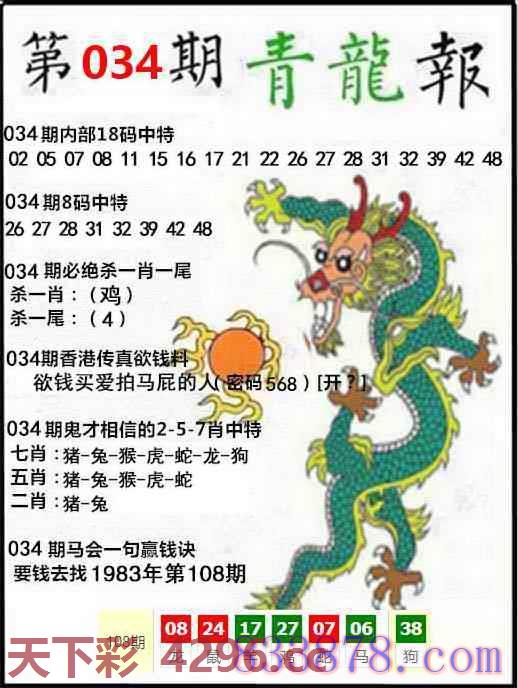 第034期青龍報
034期内部18码中特
02 05 07 08 11 15 16 17 21 22 26 27 28 31 32 39 42 48
034期8码中特
26 27 28 31 32 39 42 48
034期必绝杀一肖一尾
杀一肖:(鸡)
杀一尾:(4)
034期香港传真欲钱料
欲钱买爱拍马屁的人(密码568)[开?]
034期鬼才相信的2-5-7肖中特
七肖:猪-兔-猴-虎-蛇-龙-狗
五肖:猪-兔-猴-虎-蛇
二肖:猪-兔
034期马会一句赢钱诀
要钱去找1983年第108期
108期 08 24 17 27 07 06 38
龙 鼠 羊 鸡 蛇 马 狗
天下彩 4296.cc